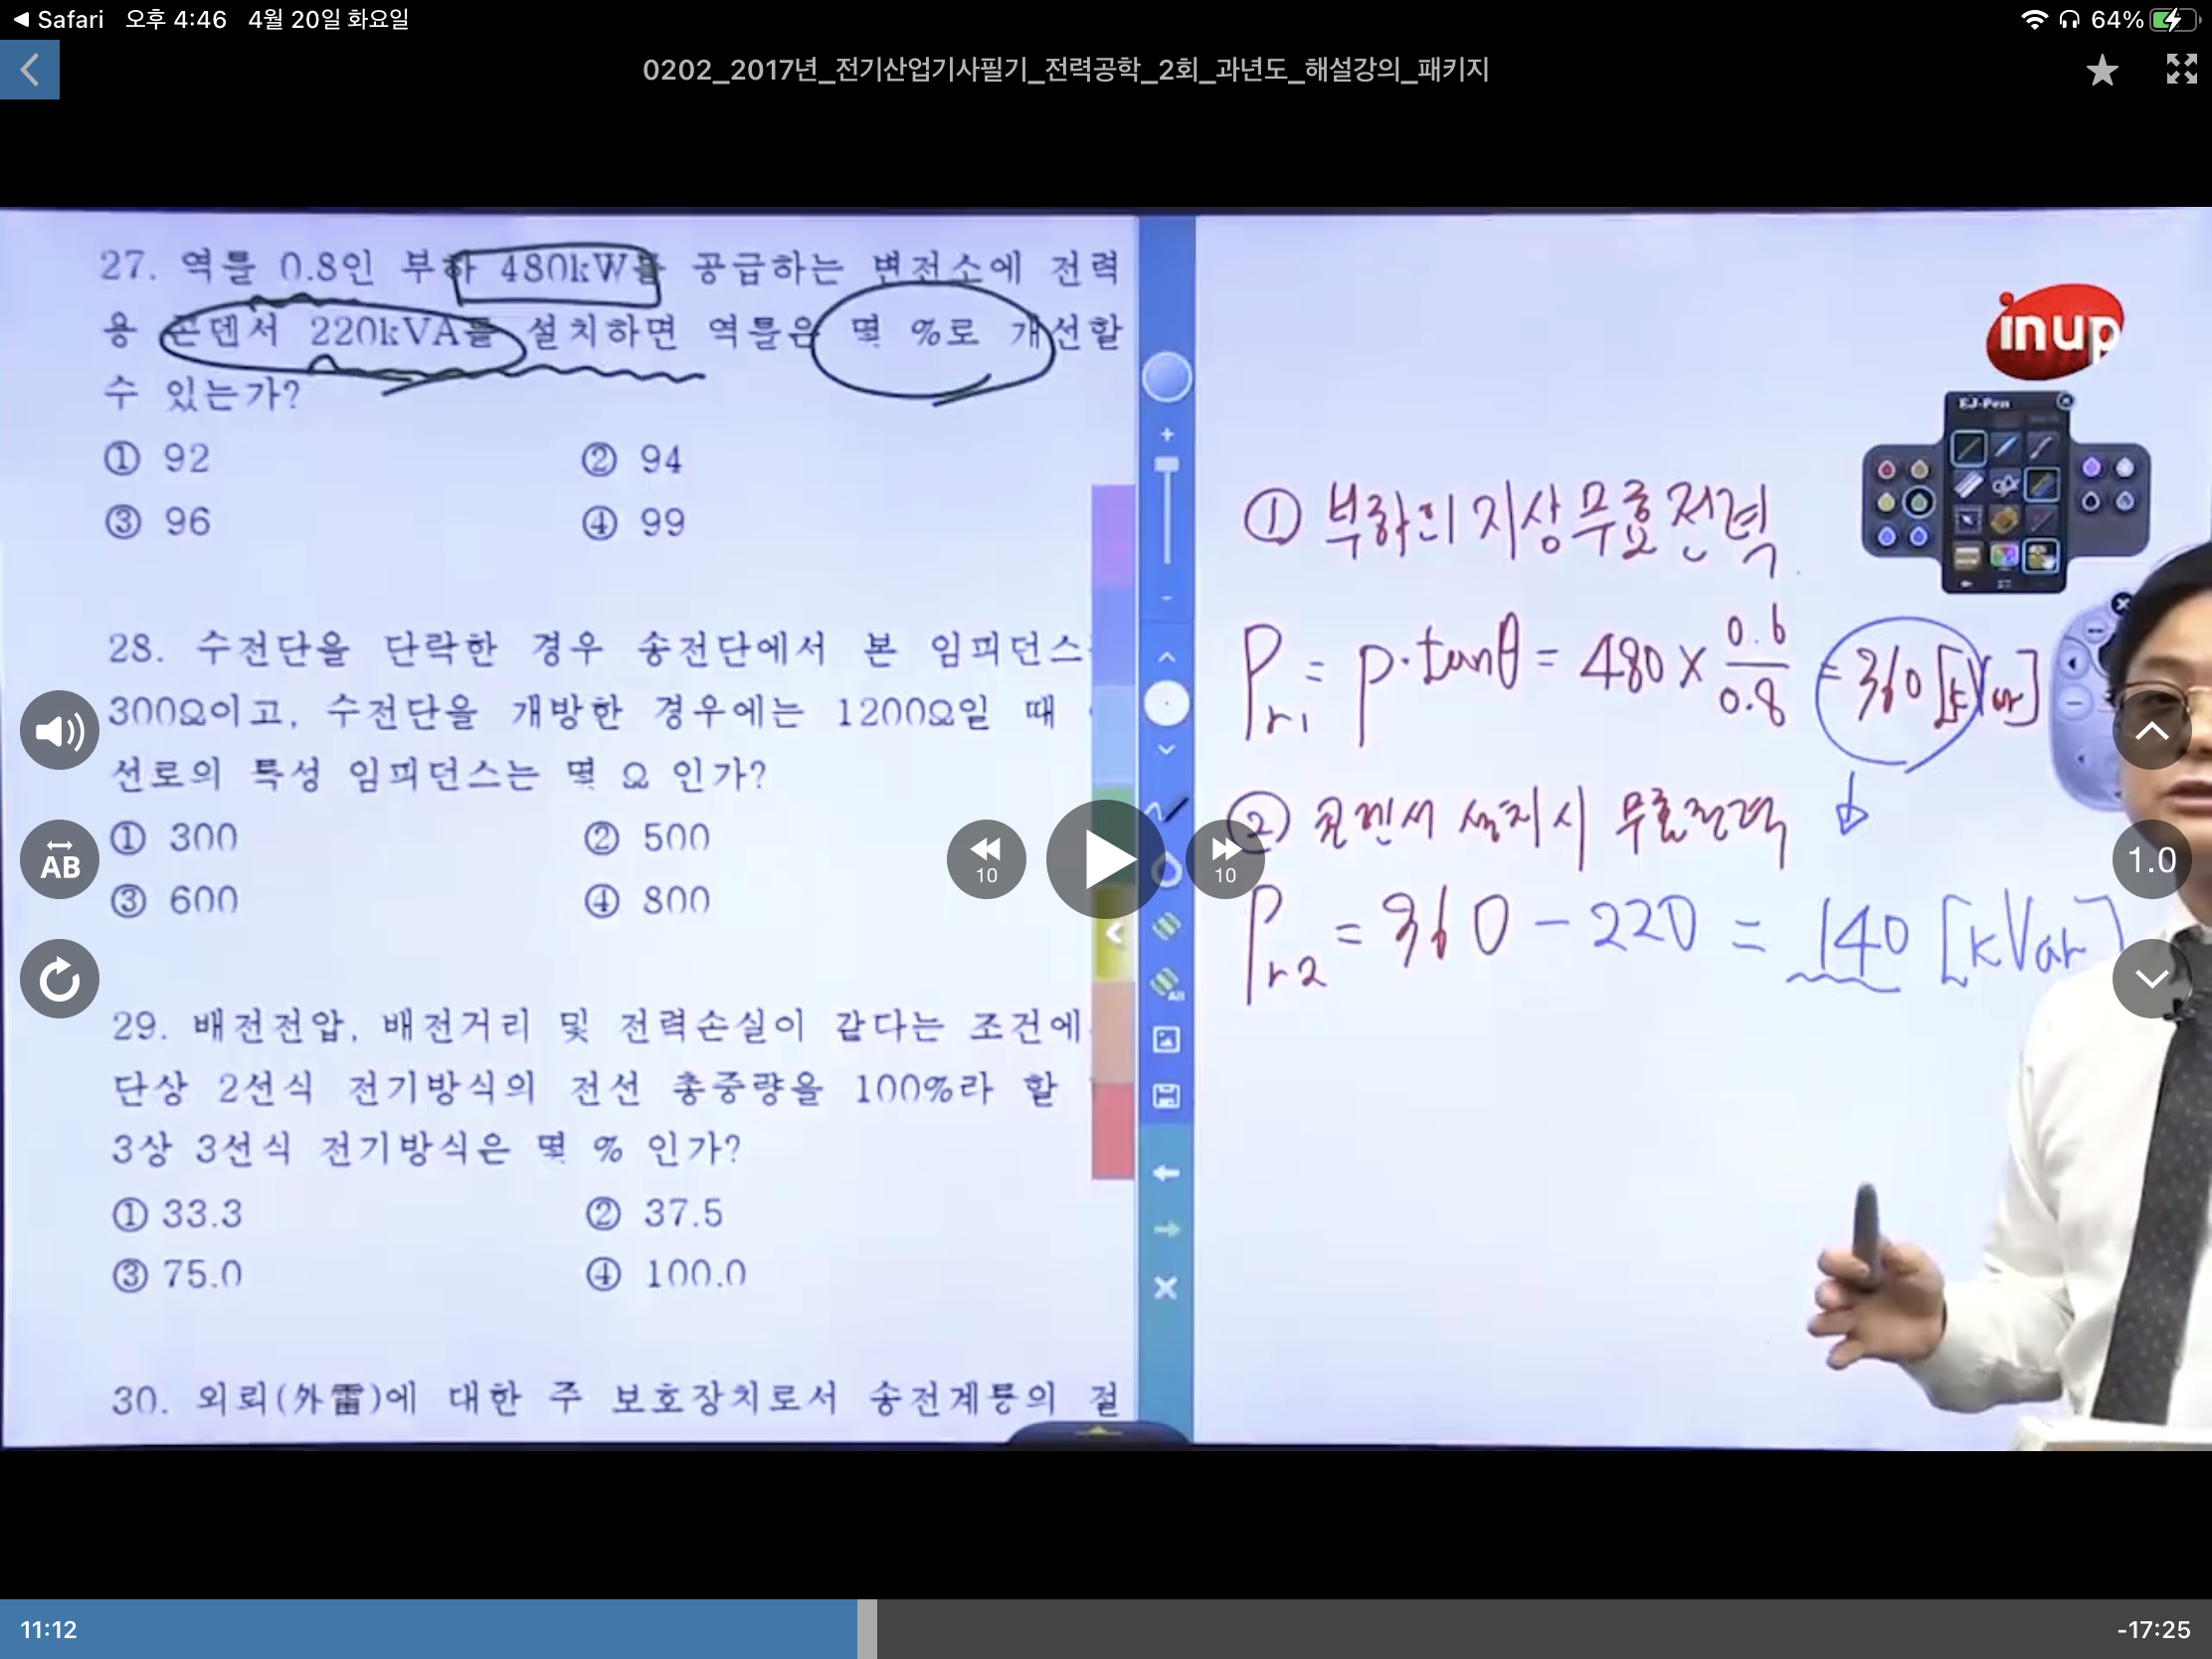 Safari 오후 4:46 4월 20일 화요일
64%
0202_2017년_전기산업기사필기_전력공학_2회_과년도_해설강의_패키지
27. 역률 0.8인 부하 480kW를 공급하는 변전소에 전력
용 콘덴서 220kVA를 설치하면 역률은 몇 %로 개선할
수 있는가?
① 92 ② 94
③ 96 ④ 99
28. 수전단을 단락한 경우 송전단에서 본 임피던스
300Ω이고, 수전단을 개방한 경우에는 1200Ω일 때
선로의 특성 임피던스는 몇 Ω 인가?
① 300 ② 500
③ 600 ④ 800
29. 배전전압, 배전거리 및 전력손실이 같다는 조건에
단상 2선식 전기방식의 전선 총중량을 100%라 할
3상 3선식 전기방식은 몇 % 인가?
① 33.3 ② 37.5
③ 75.0 ④ 100.0
30. 외뢰(外雷)에 대한 주 보호장치로서 송전계통의 절
inup
EJ-Pen
① 부하의 지상무효전력
Pr1 = P·tanθ = 480 × 0.6/0.8 = 360 [kVar]
② 콘덴서 설치시 무효전력
Pr2 = 360 - 220 = 140 [kVar]
All
AB
10
10
1.0
11:12
-17:25